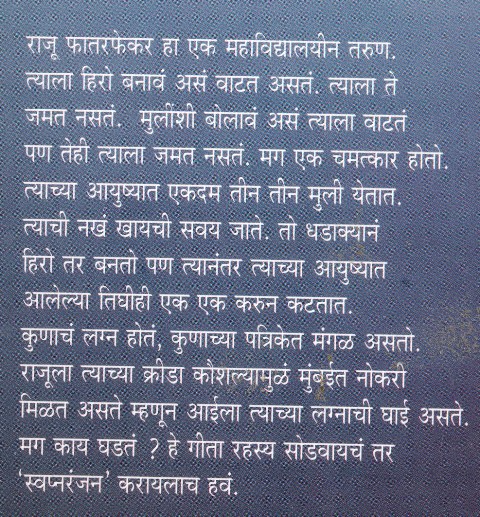 राजू फातरफेकर हा एक महाविद्यालयीन तरुण.
त्याला हिरो बनावं असं वाटत असतं. त्याला ते
जमत नसतं. मुलींशी बोलावं असं त्याला वाटतं
पण तेही त्याला जमत नसतं. मग एक चमत्कार होतो.
त्याच्या आयुष्यात एकदम तीन तीन मुली येतात.
त्याची नखं खायची सवय जाते. तो धडाक्यानं
हिरो तर बनतो पण त्यानंतर त्याच्या आयुष्यात
आलेल्या तिघीही एक एक करुन कटतात.
कुणाचं लग्न होतं, कुणाच्या पत्रिकेत मंगळ असतो.
राजूला त्याच्या क्रीडा कौशल्यामुळं मुंबईत नोकरी
मिळत असते म्हणून आईला त्याच्या लग्नाची घाई असते.
मग काय घडतं ? हे गीता रहस्य सोडवायचं तर
‘स्वप्नरंजन’ करायलाच हवं.